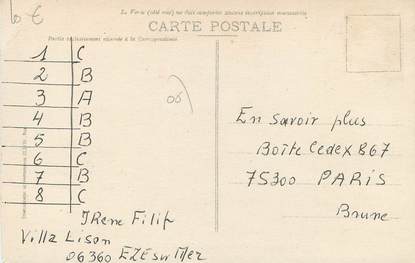 6 €
Le Verso (côté vue) ne doit comporter aucune inscription manuscrite
CARTE POSTALE
Partie exclusivement réservée à la Correspondance
1 C
2 B
3 A
4 B
5 B
6 C
7 B
8 C
06
IRene Filip
Villa Lison
06360 EZE sur Mer
En savoir plus
Boîte Cedex B67
75300 PARIS
Brune